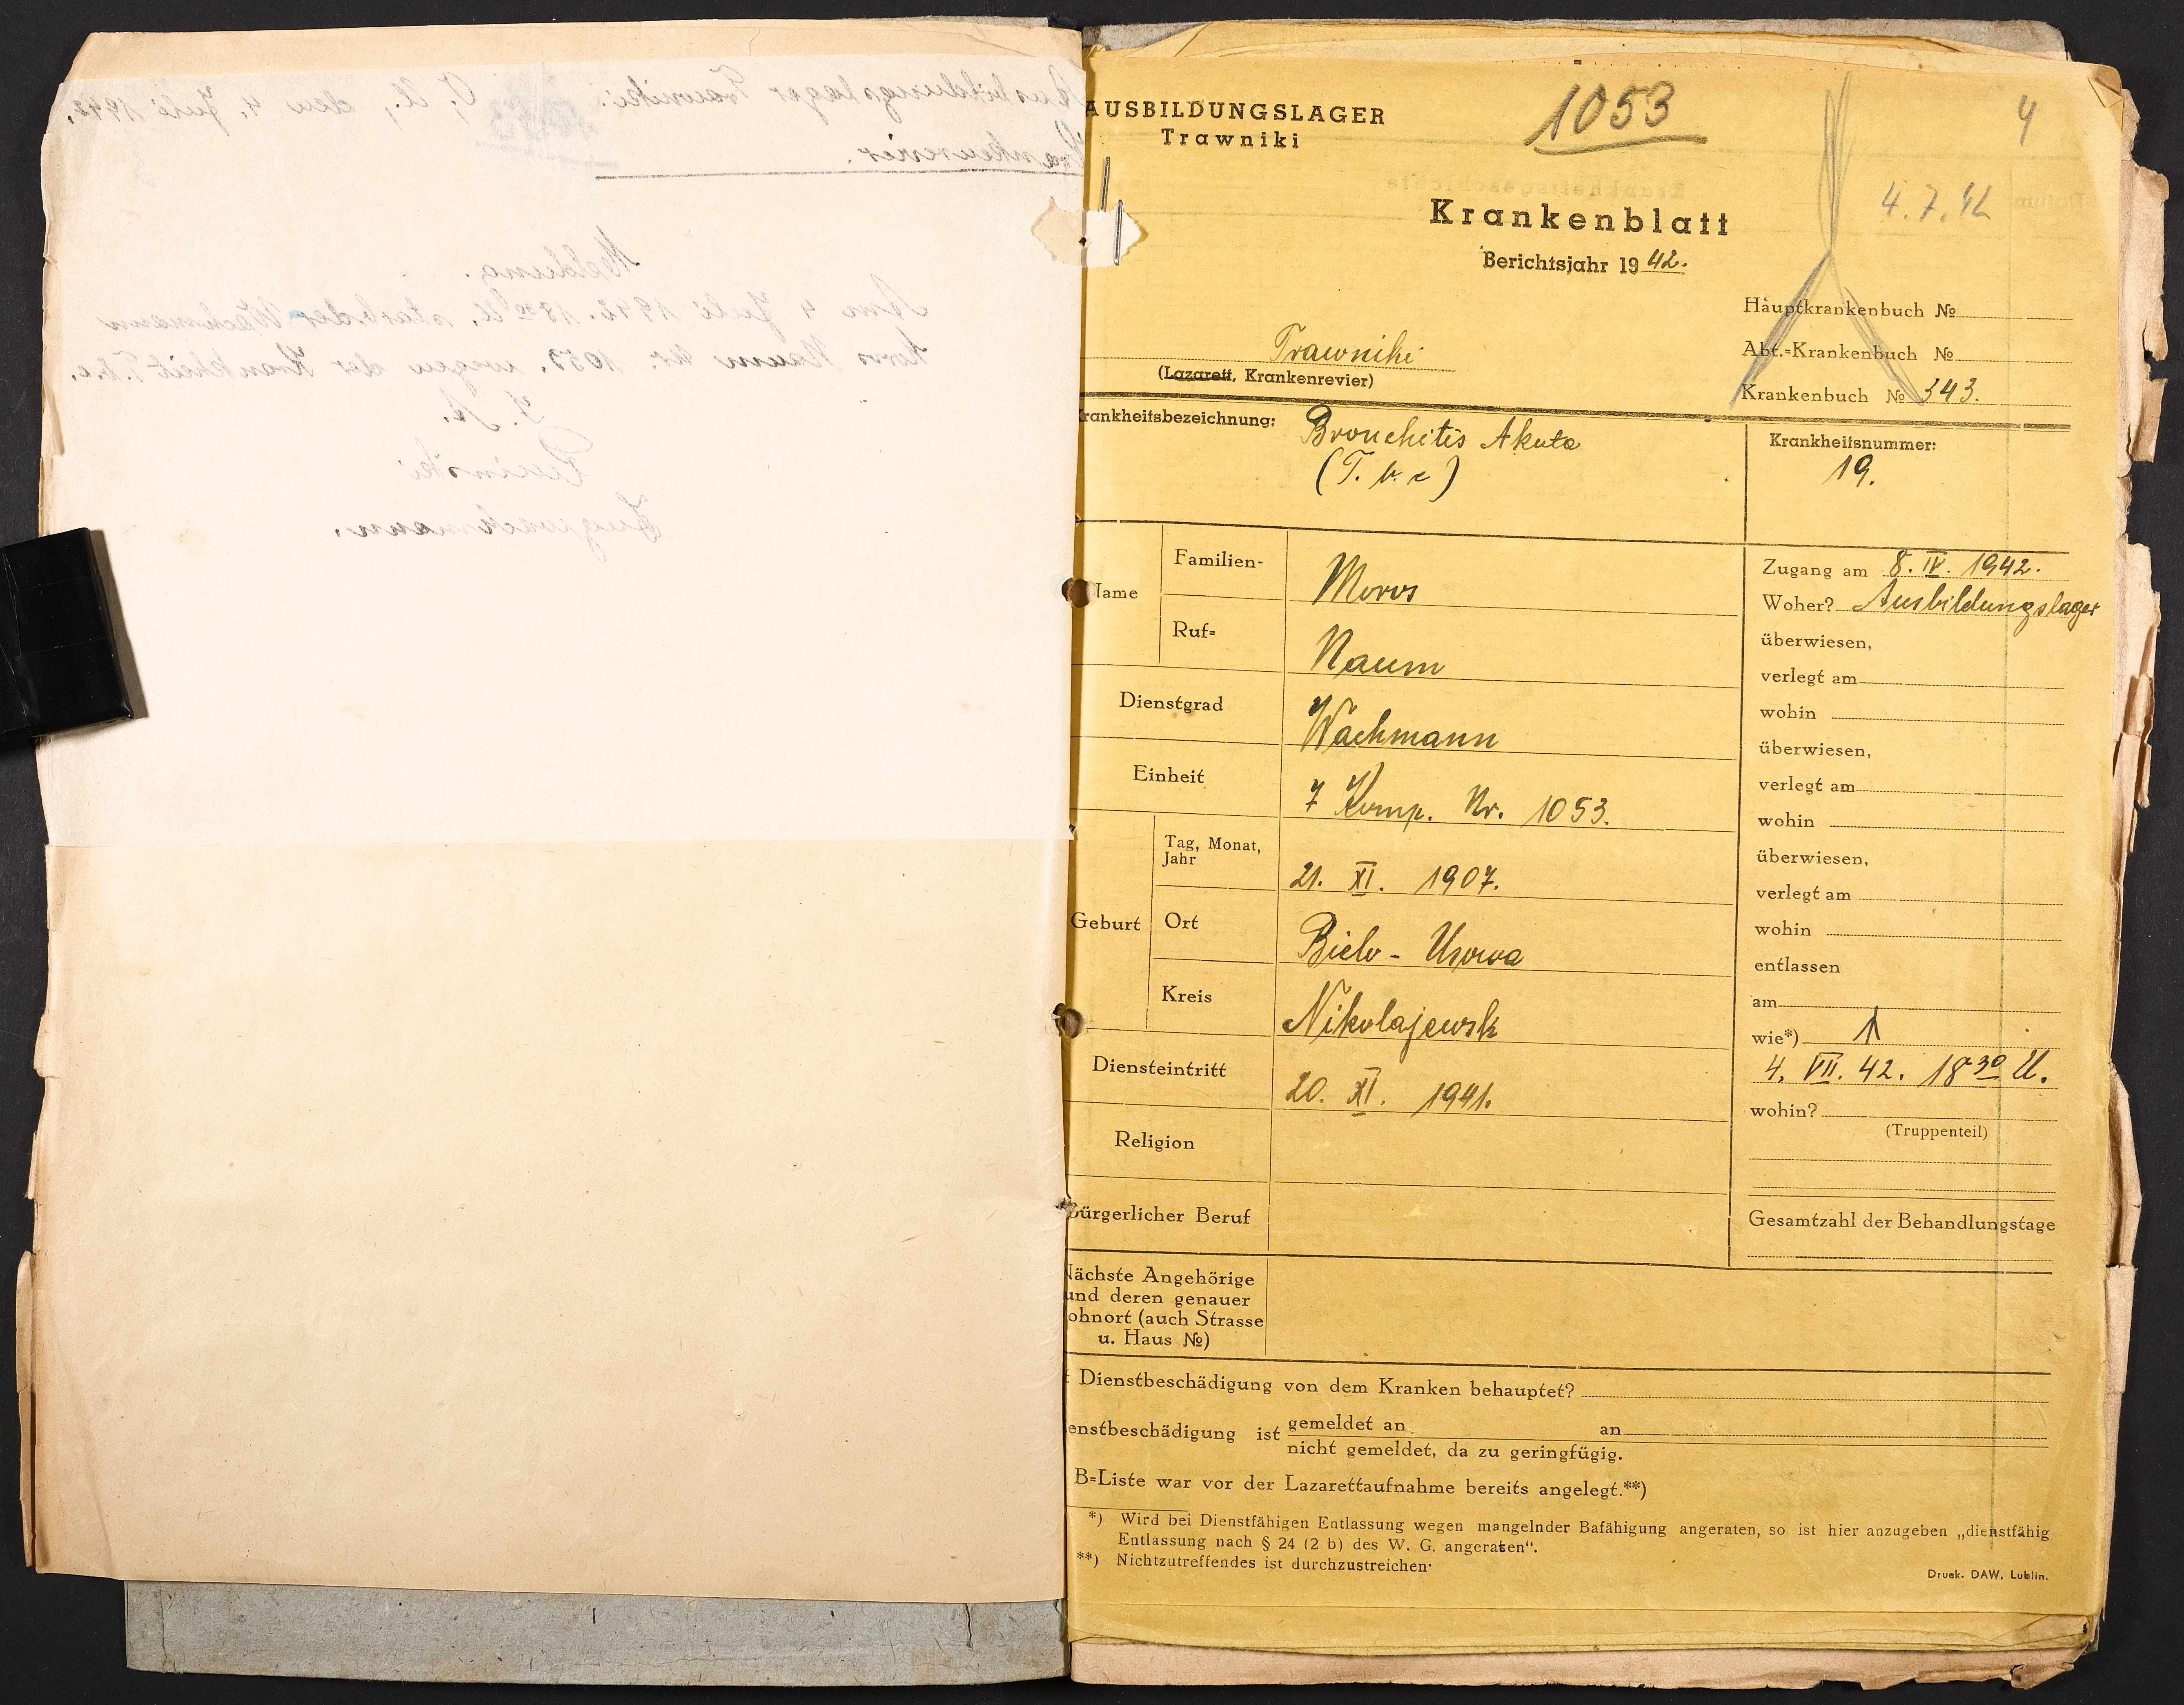 Ausbildungslager Trawniki. O. U., den 4. Juli 1942.
Krankenrevier.
Meldung.
Am 4 Juli 1942. 18³⁰ U. starb der Wachmann
Moros Naum Nr. 1053. wegen der Krankheit T.b.c.
Zugwachmann.
AUSBILDUNGSLAGER
Trawniki
1053
4
4.7.42
Krankenblatt
Berichtsjahr 1942.
Hauptkrankenbuch №
Abt.=Krankenbuch №
Krankenbuch № 343.
Trawniki
(Lazarett, Krankenrevier)
rankheitsbezeichnung: Bronchitis Akuta
(T. b. c)
Krankheitsnummer:
19.
Name
Familien- Moros
Ruf= Naum
Dienstgrad Wachmann
Einheit 7 Komp. Nr. 1053.
Geburt
Tag, Monat,
Jahr 21. XI. 1907.
Ort Bielo - Usowa
Kreis Nikolajewsk
Diensteintritt 20. XI. 1941.
Religion
Bürgerlicher Beruf
Zugang am 8. IV. 1942.
Woher? Ausbildungslager
überwiesen,
verlegt am
wohin
überwiesen,
verlegt am
wohin
überwiesen,
verlegt am
wohin
entlassen
am
wie*)
4. VII. 42. 18³⁰ U.
wohin?
(Truppenteil)
Gesamtzahl der Behandlungstage
Nächste Angehörige
und deren genauer
ohnort (auch Strasse
u. Haus №)
t Dienstbeschädigung von dem Kranken behauptet?
enstbeschädigung ist gemeldet an an
nicht gemeldet, da zu geringfügig.
B=Liste war vor der Lazarettaufnahme bereits angelegt.**)
*) Wird bei Dienstfähigen Entlassung wegen mangelnder Bafähigung angeraten, so ist hier anzugeben „dienstfähig
Entlassung nach § 24 (2 b) des W. G. angeraten“.
**) Nichtzutreffendes ist durchzustreichen.
Druck. DAW, Lublin.